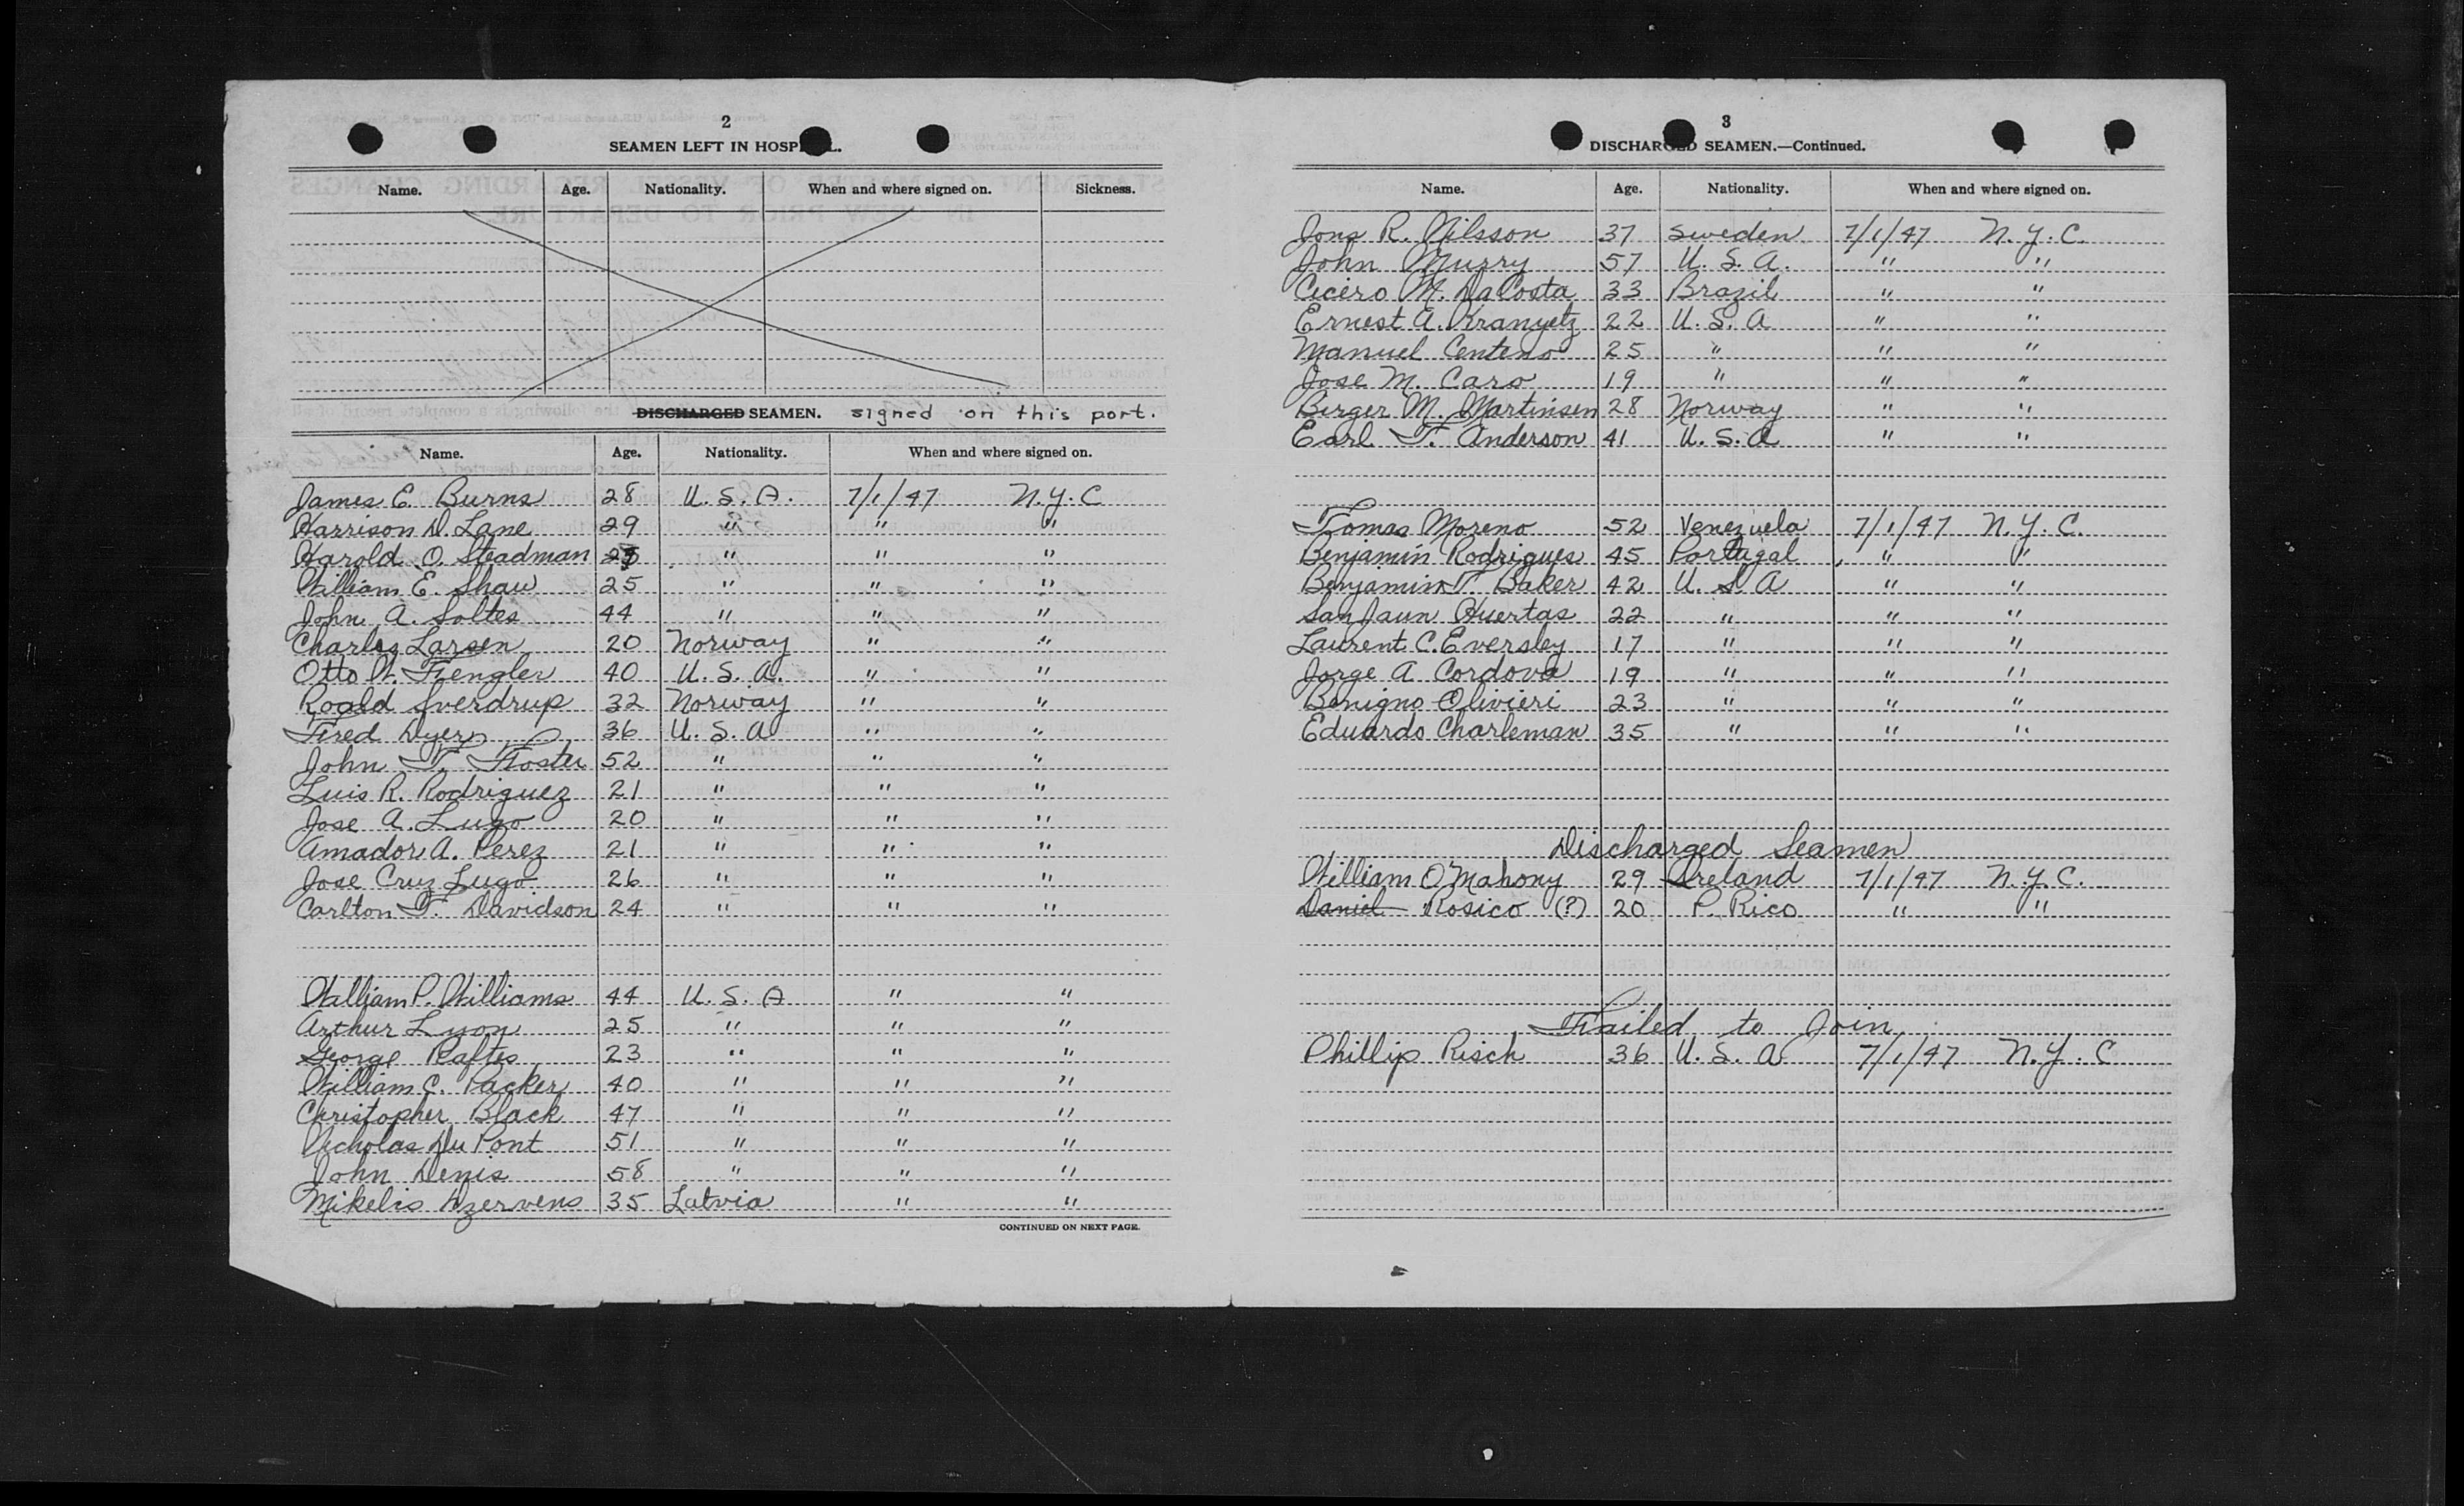 2
SEAMEN LEFT IN HOSP L.
Name. Age. Nationality. When and where signed on. Sickness.
DISCHARGED SEAMEN. signed on this port.
Name. Age. Nationality. When and where signed on.
James E. Burns 28 U. S. A. 7/1/47 N.Y.C
Harrison D. Lane 29 " " "
Harold O. Steadman " " "
William E. Shaw 25 " " "
John A. Soltes 44 " " "
Charles Larsen 20 Norway " "
Otto W. Fengler 40 U. S. A. " "
Roald Sverdrup 32 Norway " "
Fred Dyer 36 U. S. A " "
John F. Foster 52 " " "
Luis R. Rodriguez 21 " " "
Jose A. Lugo 20 " " "
Amador A. Perez 21 " " "
Jose Cruz Lugo 26 " " "
Carlton F. Davidson 24 " " "
William P. Williams 44 U. S. A " "
Arthur Lyon 25 " " "
George Raftes 23 " " "
William C. Packer 40 " " "
Christopher Black 47 " " "
Nicholas Du Pont 51 " " "
John Denis 58 " " "
Mikelis Dzervens 35 Latvia " "
CONTINUED ON NEXT PAGE.
3
DISCHARGED SEAMEN.—Continued.
Name. Age. Nationality. When and where signed on.
Jons R. Nilsson 37 Sweden 7/1/47 N.Y.C.
John Murry 57 U. S. A. " "
Cicero M. DaCosta 33 Brazil " "
Ernest A. Kranyetz 22 U. S. A " "
Manuel Centeno 25 " " "
Jose M. Caro 19 " " "
Birger M. Martinsen 28 Norway " "
Earl F. Anderson 41 U. S. A " "
Tomas Moreno 52 Venezuela 7/1/47 N.Y.C.
Benjamin Rodrigues 45 Portugal " "
Benjamin F. Baker 42 U. S. A " "
San Jaun Huertas 22 " " "
Laurent C. Eversley 17 " " "
Jorge A Cordova 19 " " "
Benigno Olivieri 23 " " "
Eduardo Charleman 35 " " "
Discharged Seamen
William O'Mahony 29 Ireland 7/1/47 N.Y.C.
Daniel Rosico (?) 20 P. Rico " "
Failed to Join
Phillip Risch 36 U. S. A. 7/1/47 N.Y.C